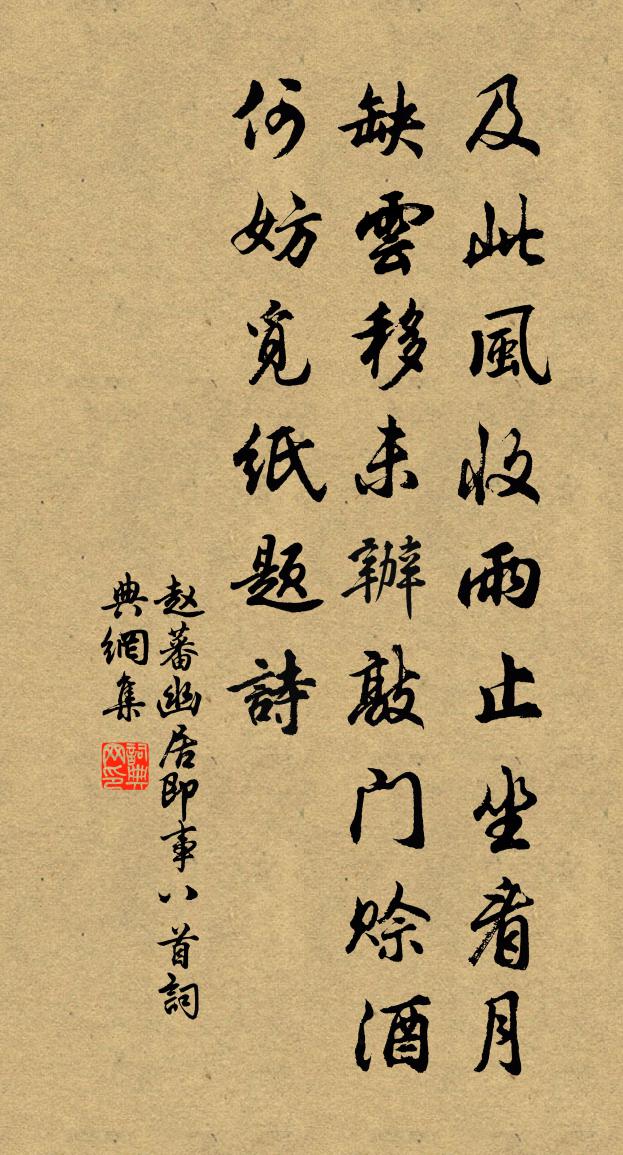 及此風收雨止坐看月
缺雲移未辦敲门賒酒
何妨覓纸题詩
赵蕃幽居即事八首詞
典網集
詞典网印